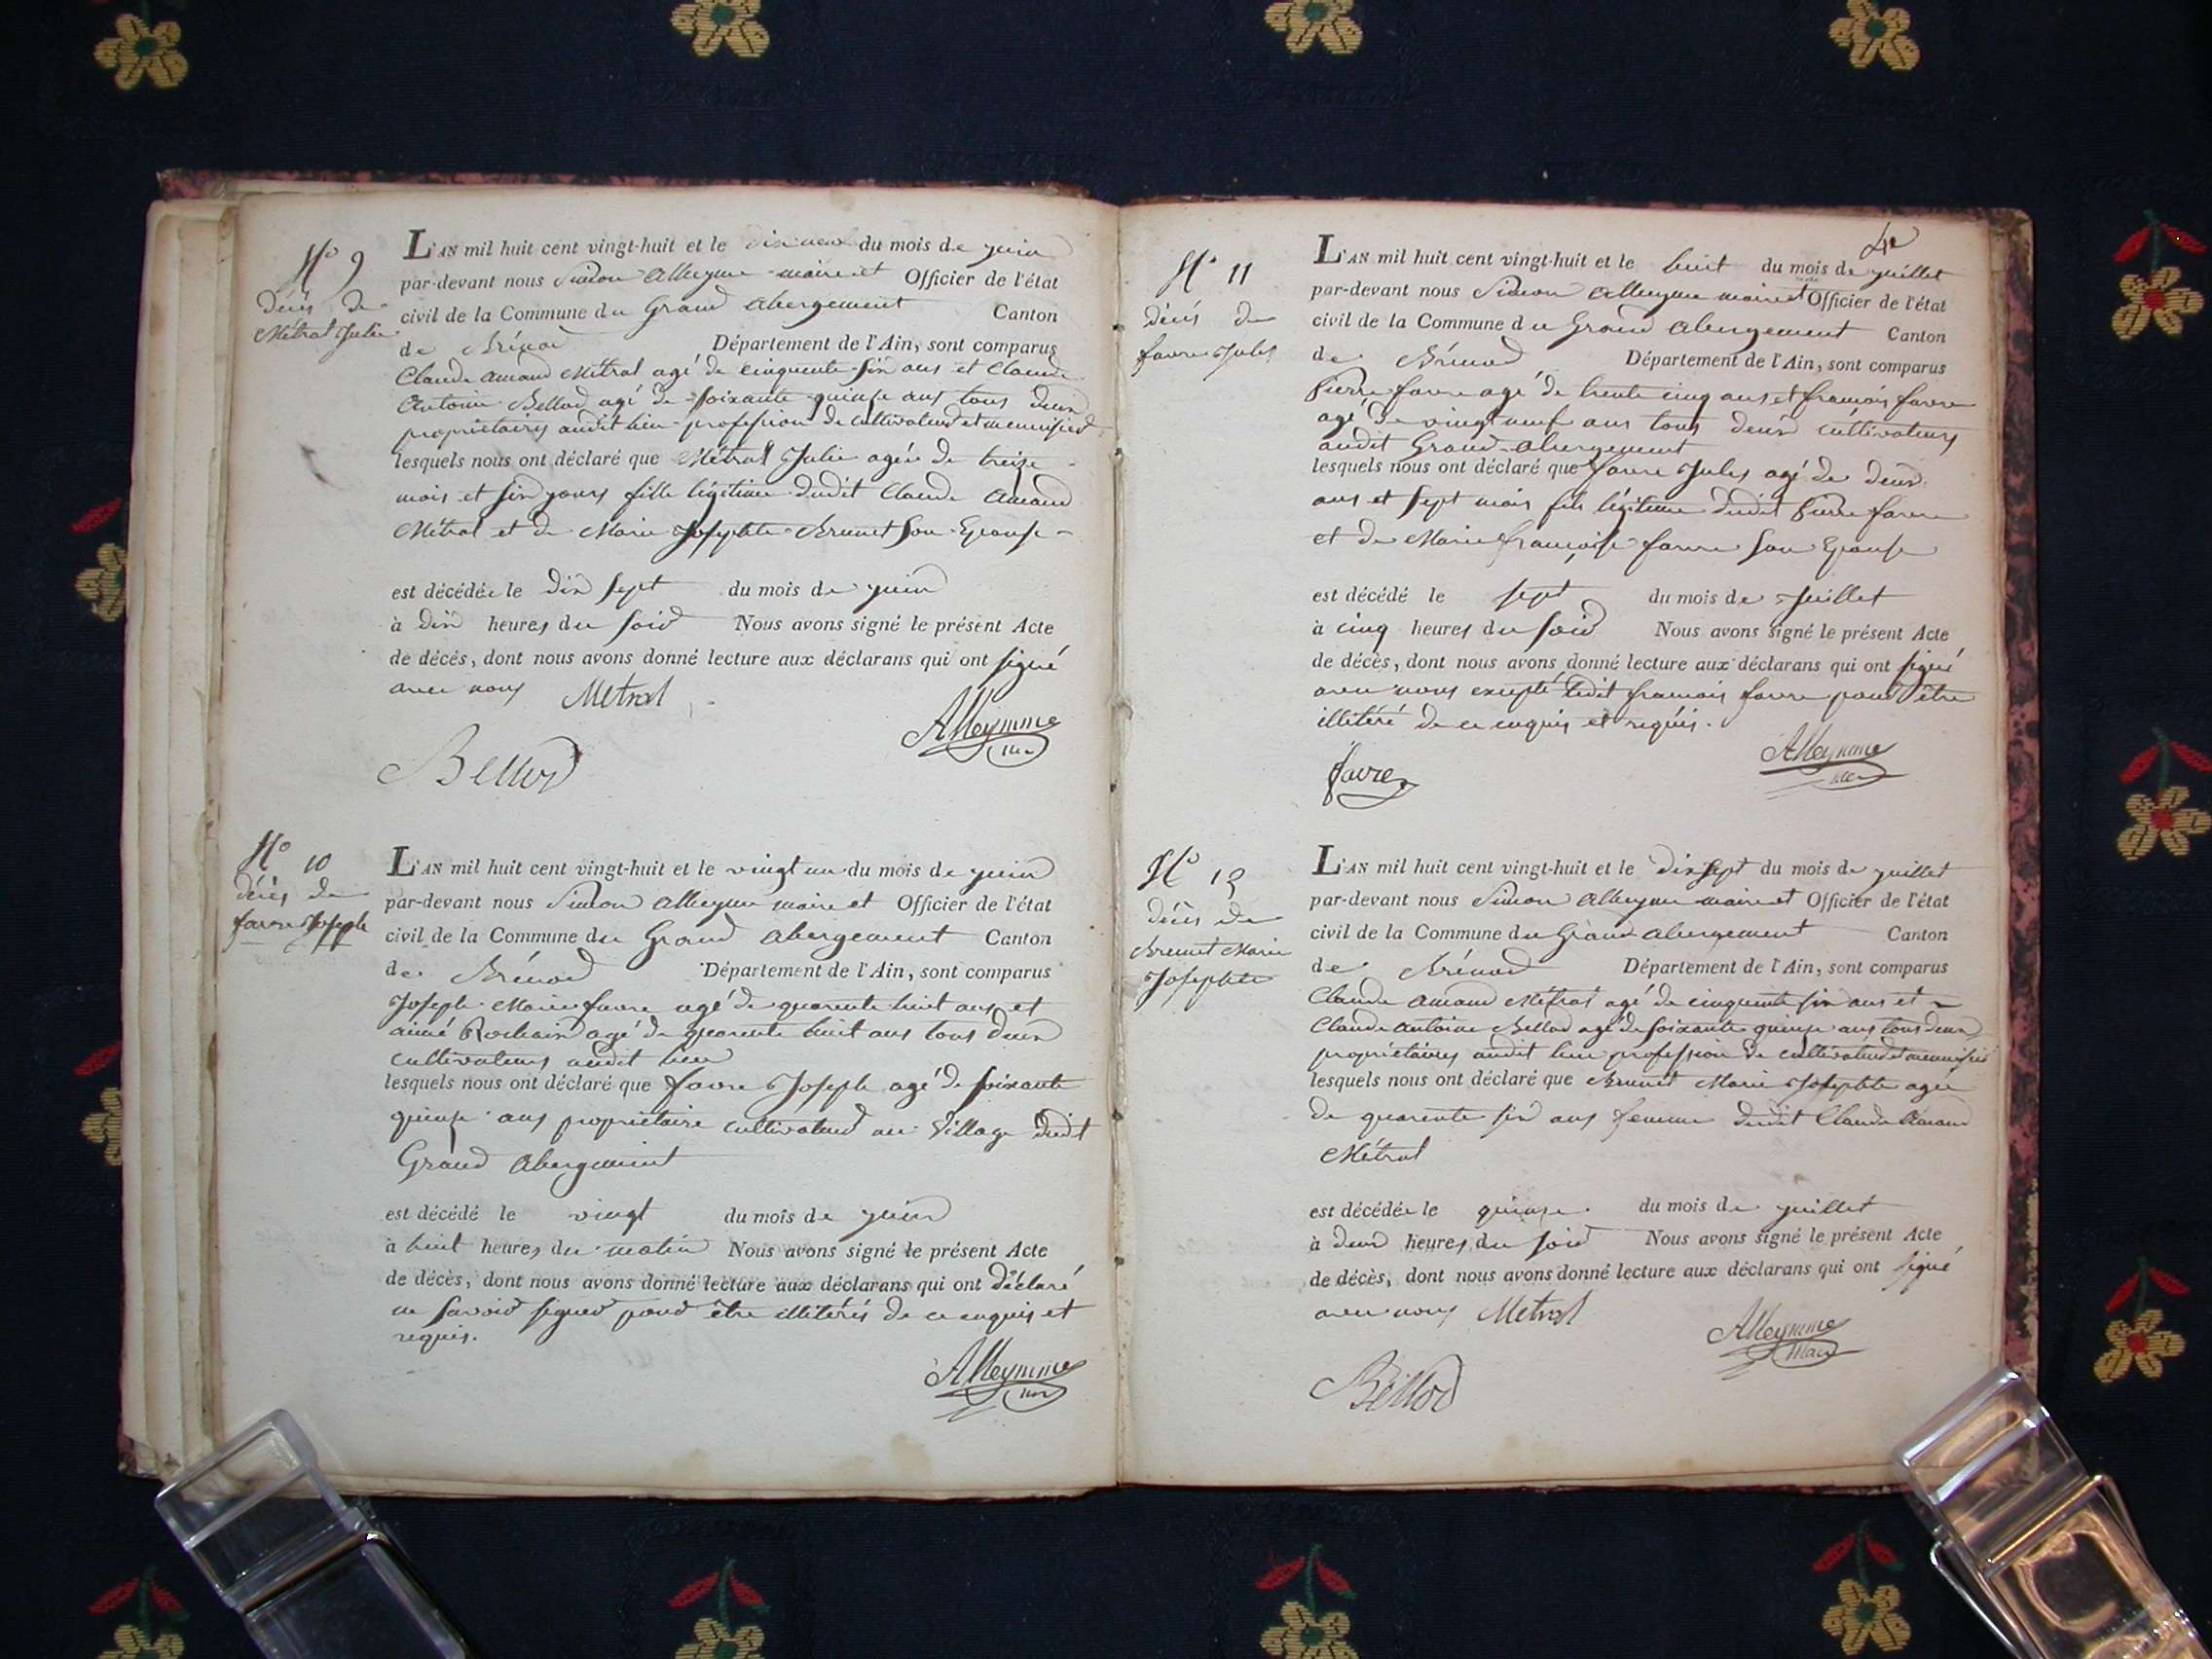 N° 9
décès de
Métral Julie
L'AN mil huit cent vingt-huit et le dix neuf du mois de juin
par-devant nous Simon Alleymme maire et Officier de l'état
civil de la Commune du Grand abergement Canton
de Brénod Département de l'Ain, sont comparus
Claude amand Métral agé de cinquante six ans et Claude
Antoine Bellod agé de soixante quinze ans tous deux
propriétaires audit lieu profession de cultivateur et menuisier
lesquels nous ont déclaré que Métral Julie agée de treize
mois et six jours fille légitime dudit Claude Amand
Métral et de Marie Josephte Brunet son Epouse
est décédée le dix sept du mois de juin
à dix heures du soir Nous avons signé le présent Acte
de décès, dont nous avons donné lecture aux déclarans qui ont signé
avec nous Metral
Alleymme
Bellod
N° 10
décès de
favre Joseph
L'AN mil huit cent vingt-huit et le vingt un du mois de juin
par-devant nous Simon Alleymme maire et Officier de l'état
civil de la Commune du Grand abergement Canton
de Brénod Département de l'Ain, sont comparus
Joseph Marie favre agé de quarente huit ans et
aimé Rochaix agé de quarente huit ans tous deux
cultivateurs audit lieu
lesquels nous ont déclaré que favre Joseph agé de soixante
quinze ans propriétaire cultivateur au Village dudit
Grand Abergement
est décédé le vingt du mois de juin
à huit heures du matin Nous avons signé le présent Acte
de décès, dont nous avons donné lecture aux déclarans qui ont déclaré
ne savoir signer pour être illitérés de ce enquis et
requis.
Alleymme
4e
N° 11
décès de
favre Jules
L'AN mil huit cent vingt-huit et le huit du mois de juillet
par-devant nous Simon Alleymme maire et Officier de l'état
civil de la Commune du Grand abergement Canton
de Brénod Département de l'Ain, sont comparus
Pierre favre agé de trente cinq ans et francois favre
agé de vingt neuf ans tous deux cultivateurs
audit Grand-abergement
lesquels nous ont déclaré que favre Jules agé de deux
ans et sept mois fils légitime dudit Pierre favre
et de Marie françoise favre son Epouse
est décédé le sept du mois de Juillet
à cinq heures du soir Nous avons signé le présent Acte
de décès, dont nous avons donné lecture aux déclarans qui ont signé
avec nous excepté ledit francois favre pour être
illitéré de ce enquis et requis.
Alleymme
favre
N° 12
décès de
Brunet Marie
Josephte
L'AN mil huit cent vingt-huit et le dix sept du mois de juillet
par-devant nous Simon Alleymme maire et Officier de l'état
civil de la Commune du Grand abergement Canton
de Brénod Département de l'Ain, sont comparus
Claude amand Métral agé de cinquante six ans et
Claude antoine Bellod agé de soixante quinze ans tous deux
propriétaires audit lieu profession de cultivateur et menuisier
lesquels nous ont déclaré que Brunet Marie Josephte agée
de quarente six ans femme dudit Claude Amand
Métral
est décédée le quinze du mois de juillet
à deux heures du soir Nous avons signé le présent Acte
de décès, dont nous avons donné lecture aux déclarans qui ont signé
avec nous Metral
Alleymme
Maire
Bellod